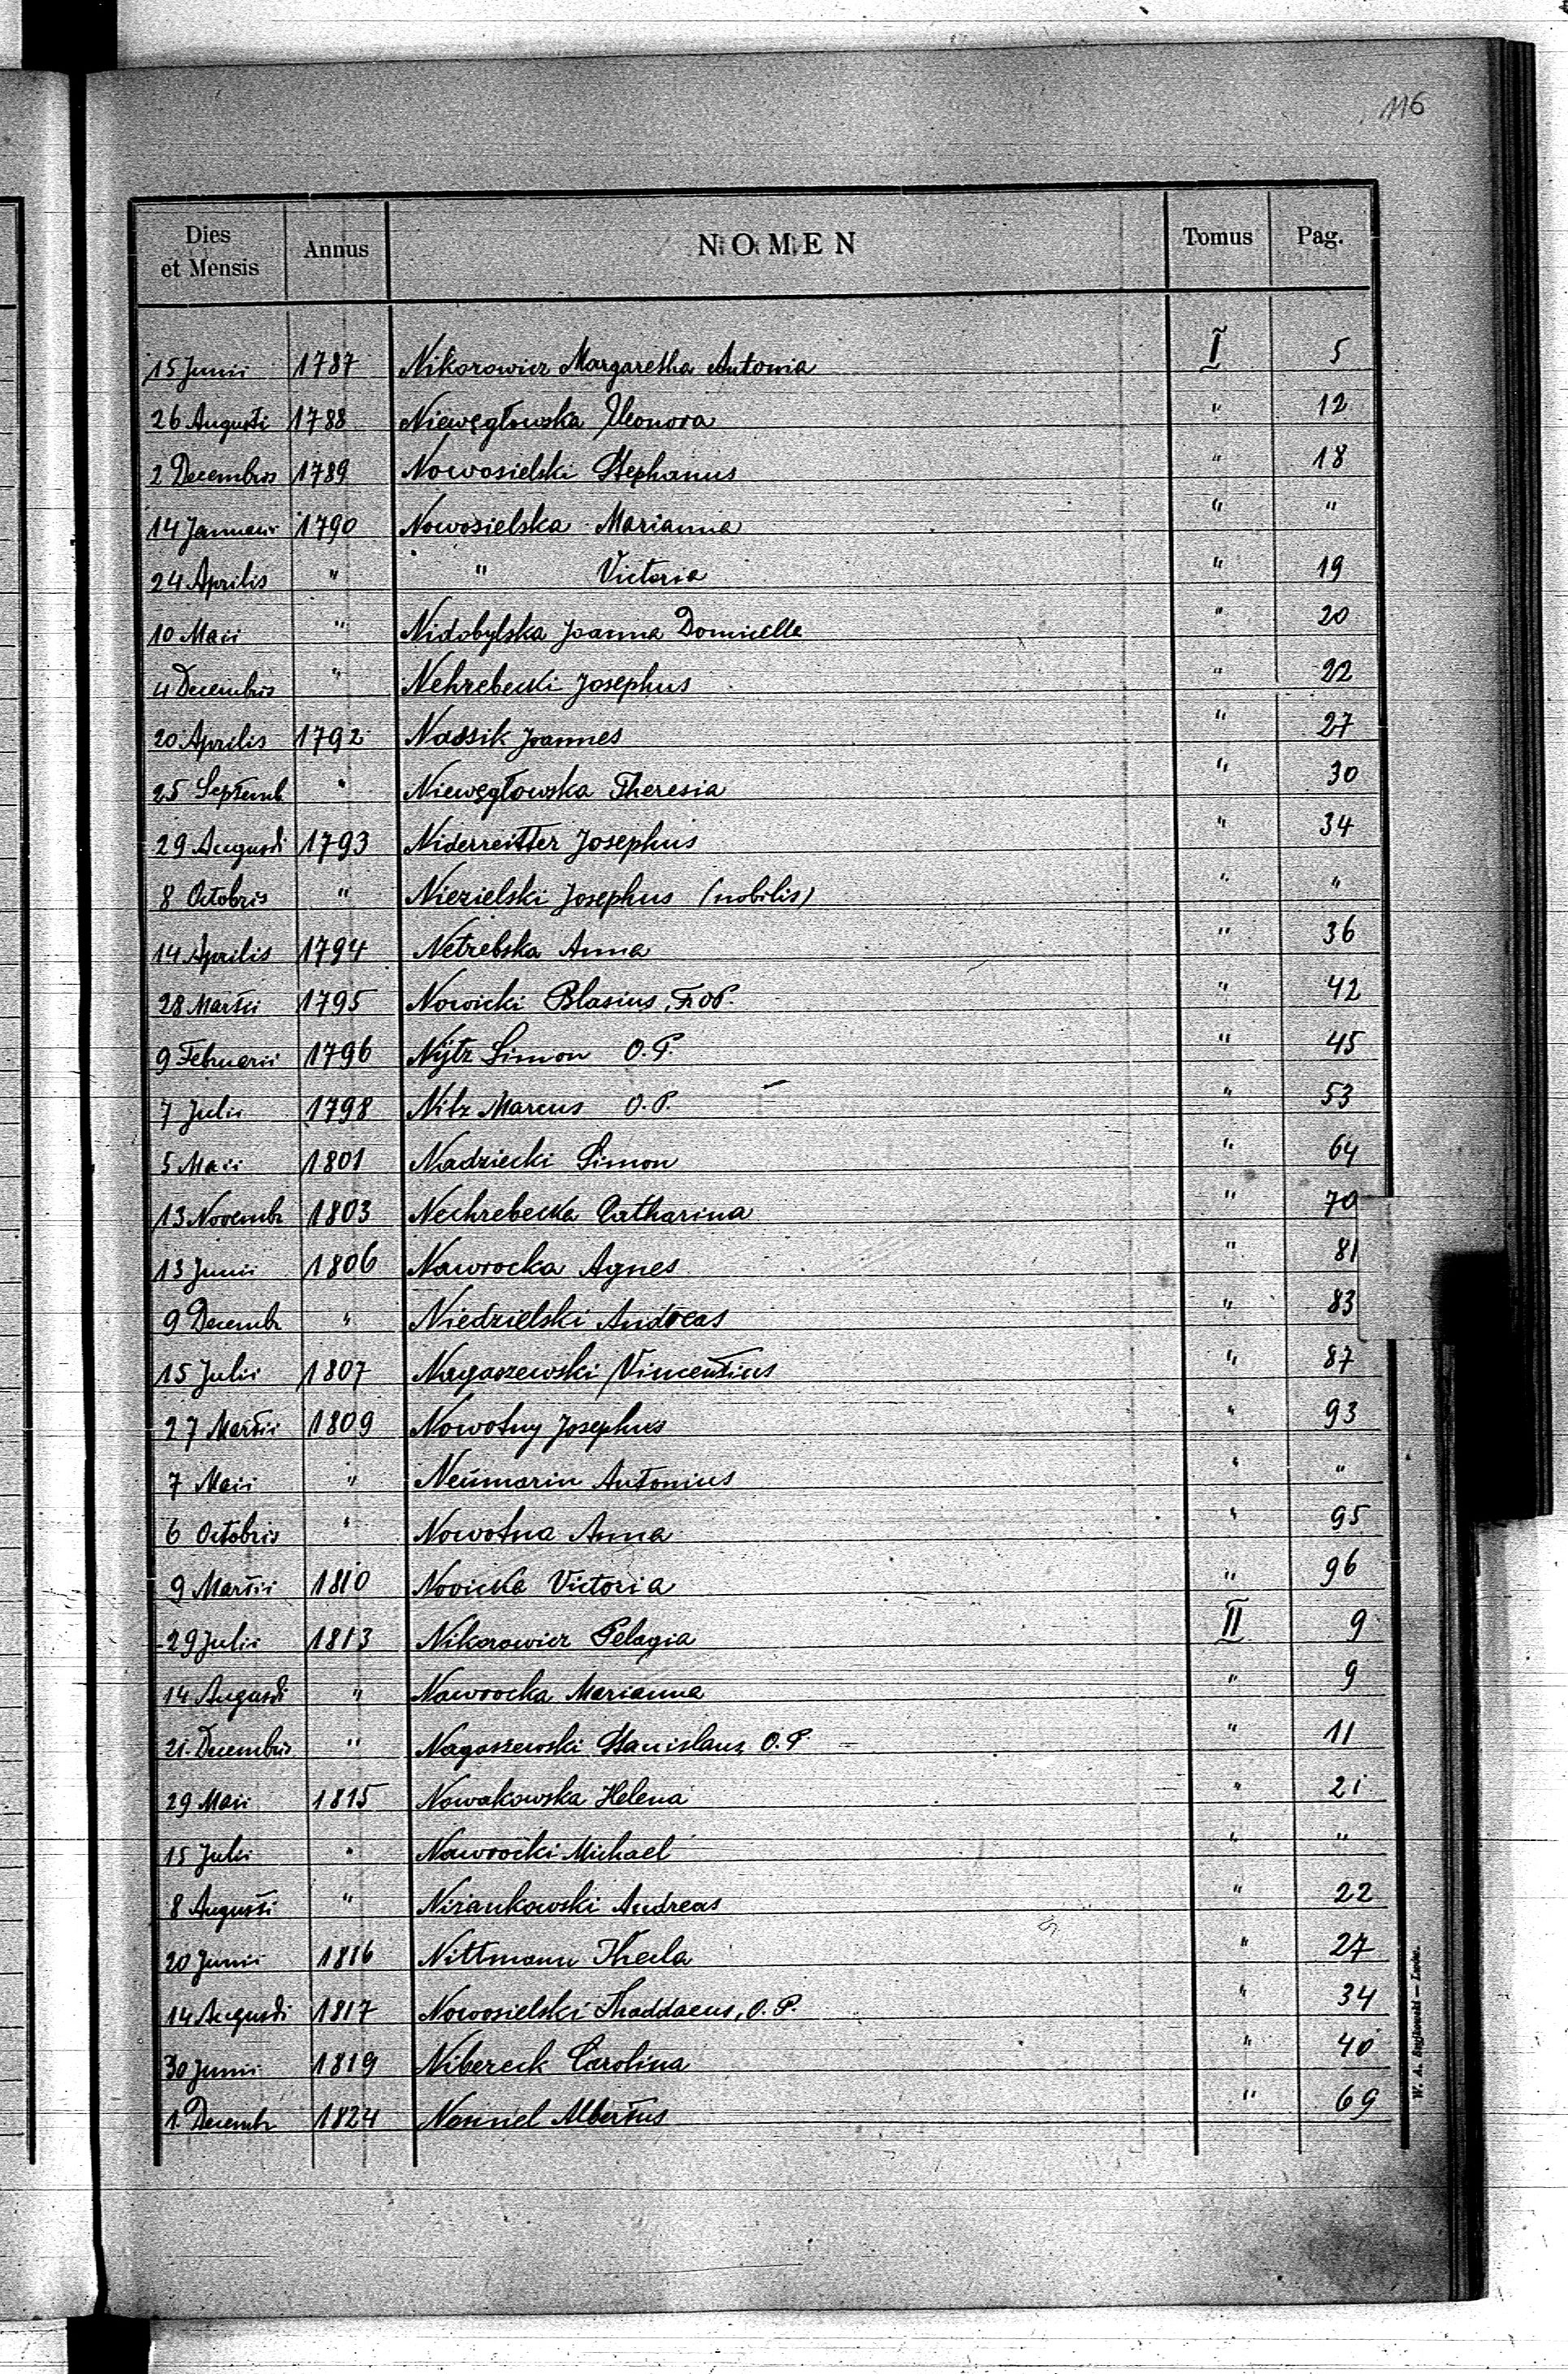 116
Dies et Mensis Annus NOMEN Tomus Pag.
15 Junii 1787 Nikorowicz Margaretha Antonia I 5
26 Augusti 1788 Niewęgłowska Eleonora " 12
2 Decembris 1789 Nowosielski Stephanus " 18
14 Januarii 1790 Nowosielska Marianna " "
24 Aprilis " " Victoria " 19
10 Maii " Nidobylska Joanna Domicella " 20
4 Decembris " Nehrebecki Josephus " 22
20 Aprilis 1792 Nassik Joannes " 27
25 Septemb. " Niewęgłowska Theresia " 30
29 Augusti 1793 Niderreitter Josephus " 34
8 Octobris " Niezielski Josephus (nobilis) " "
14 Aprilis 1794 Netrebska Anna " 36
28 Martii 1795 Nowicki Blasius, Fr OP. " 42
9 Februarii 1796 Nÿtz Simon O.P. " 45
7 Julii 1798 Nitz Marcus O.P. " 53
5 Maii 1801 Nadziecki Simon " 64
13 Novembr 1803 Nechrebecka Catharina " 70
13 Junii 1806 Nawrocka Agnes " 81
9 Decembr " Niedzielski Andreas " 83
15 Julii 1807 Nagaszewski Vincentius " 87
27 Martii 1809 Nowotny Josephus " 93
7 Maii " Neümarin Antonius " "
6 Octobris " Nowotna Anna " 95
9 Martii 1810 Novicka Victoria " 96
29 Julii 1813 Nikorowicz Pelagia II 9
14 Augusti " Nawrocka Marianna " 9
21. Decembris " Nagaszewski Stanislaus O.P. " 11
29 Maii 1815 Nowakowska Helena " 21
15 Julii " Nawrocki Michael " "
8 Augusti " Niżankowski Andreas " 22
20 Junii 1816 Nittmann Thecla " 27
14 Augusti 1817 Nowosielski Thaddaeus, O.P. " 34
30 Junii 1819 Nibereck Carolina " 40
1. Decembr 1824 Albertus " 69